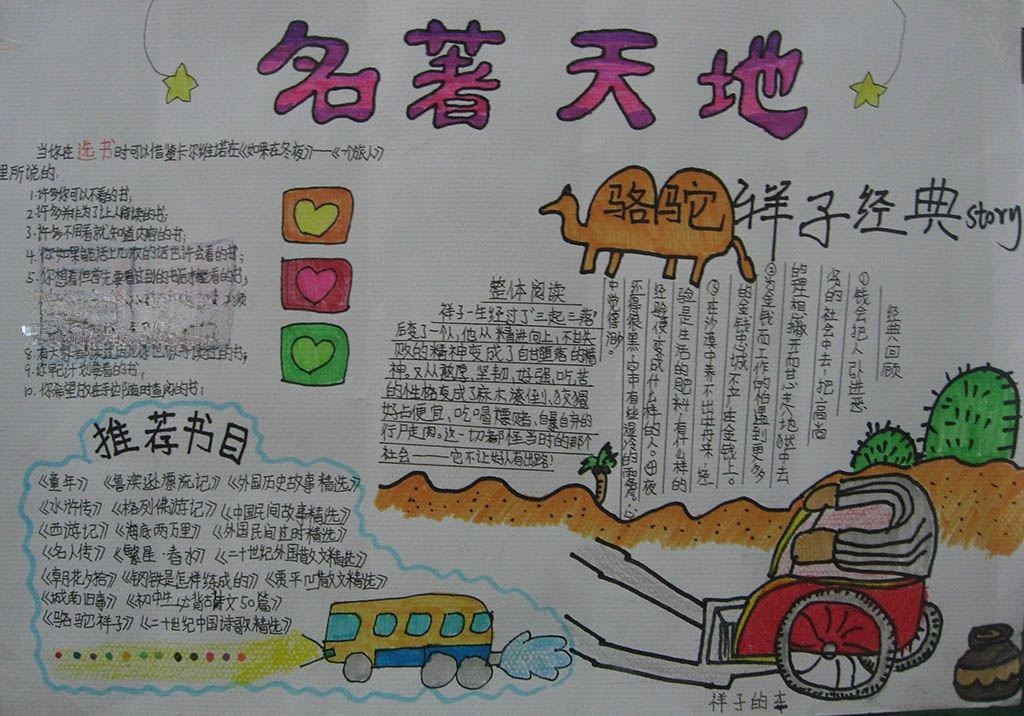 名著天地
当你在选书时可以借鉴卡尔维诺在《如果在冬夜》——《一个旅人》
里所说的:
1.许多你可以不看的书;
2.许多并非为了让人阅读的书;
3.许多不用看就知道内容的书;
4.你如果能活上几次的话也许会看的书;
5.你想看但首先要看过别的书后才能看的书;
9.你早已计划要看的书;
10.你希望放在手边随时查阅的书;
骆驼祥子经典story
整体阅读
祥子一生经过了"三起三落"
后变了一个人,他从精进向上,不甘失
败的精神变成了自甘堕落的精
神,又从敦厚、坚韧、好强、吃苦
的性格变成了麻木潦倒、狡猾
好占便宜、吃喝嫖赌、自暴自弃的
行尸走肉。这一切都怪当时的那个
社会——它不让好人有出路!
经典回顾
①钱会把人引进恶
劣的社会中去,把高尚
的理想撇开而甘心走入地狱中去
②为金钱而工作的怕遇到更多
的金钱,忠诚不立在金钱上。
③在沙漠中养不出牡丹来,经
验是生活的肥料,有什么样的
经验便变成什么样的人。④夜
还得很黑,空中有些湿冷的雾气,心
中觉得渺
推荐书目
《童年》《鲁滨逊漂流记》《外国历史故事精选》
《水浒传》《格列佛游记》《中国民间故事精选》
《西游记》《海底两万里》《外国民间故事精选》
《名人传》《繁星·春水》《二十世纪外国散文精选》
《朝花夕拾》《钢铁是怎样炼成的》《贾平凹散文精选》
《城南旧事》《初中生必背古诗文50篇》
《骆驼祥子》《二十世纪中国诗歌精选》
祥子的车